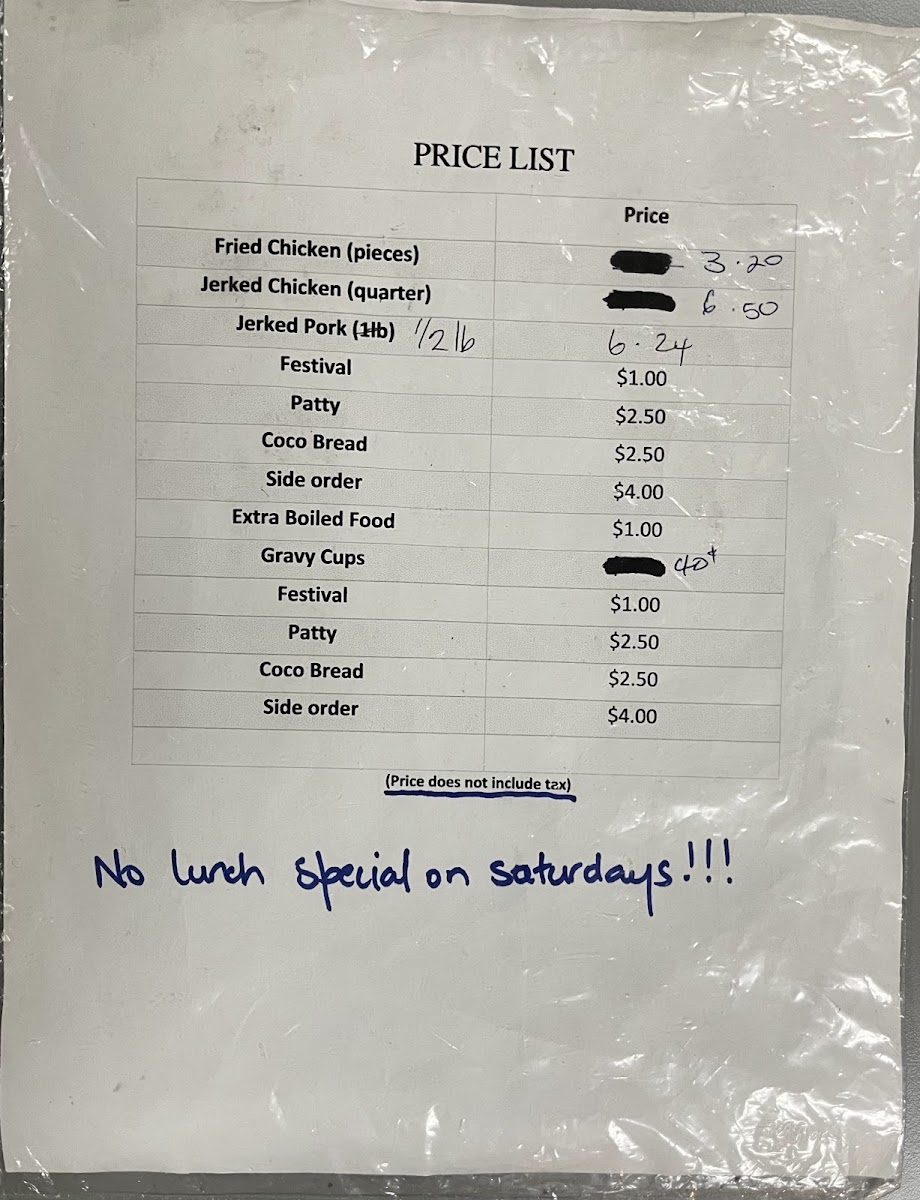 PRICE LIST
Price
Fried Chicken (pieces) 3.20
Jerked Chicken (quarter) 6.50
Jerked Pork (1lb) 1/2 lb 6.24
Festival $1.00
Patty $2.50
Coco Bread $2.50
Side order $4.00
Extra Boiled Food $1.00
Gravy Cups 40¢
Festival $1.00
Patty $2.50
Coco Bread $2.50
Side order $4.00
(Price does not include tax)
No lunch special on saturdays!!!